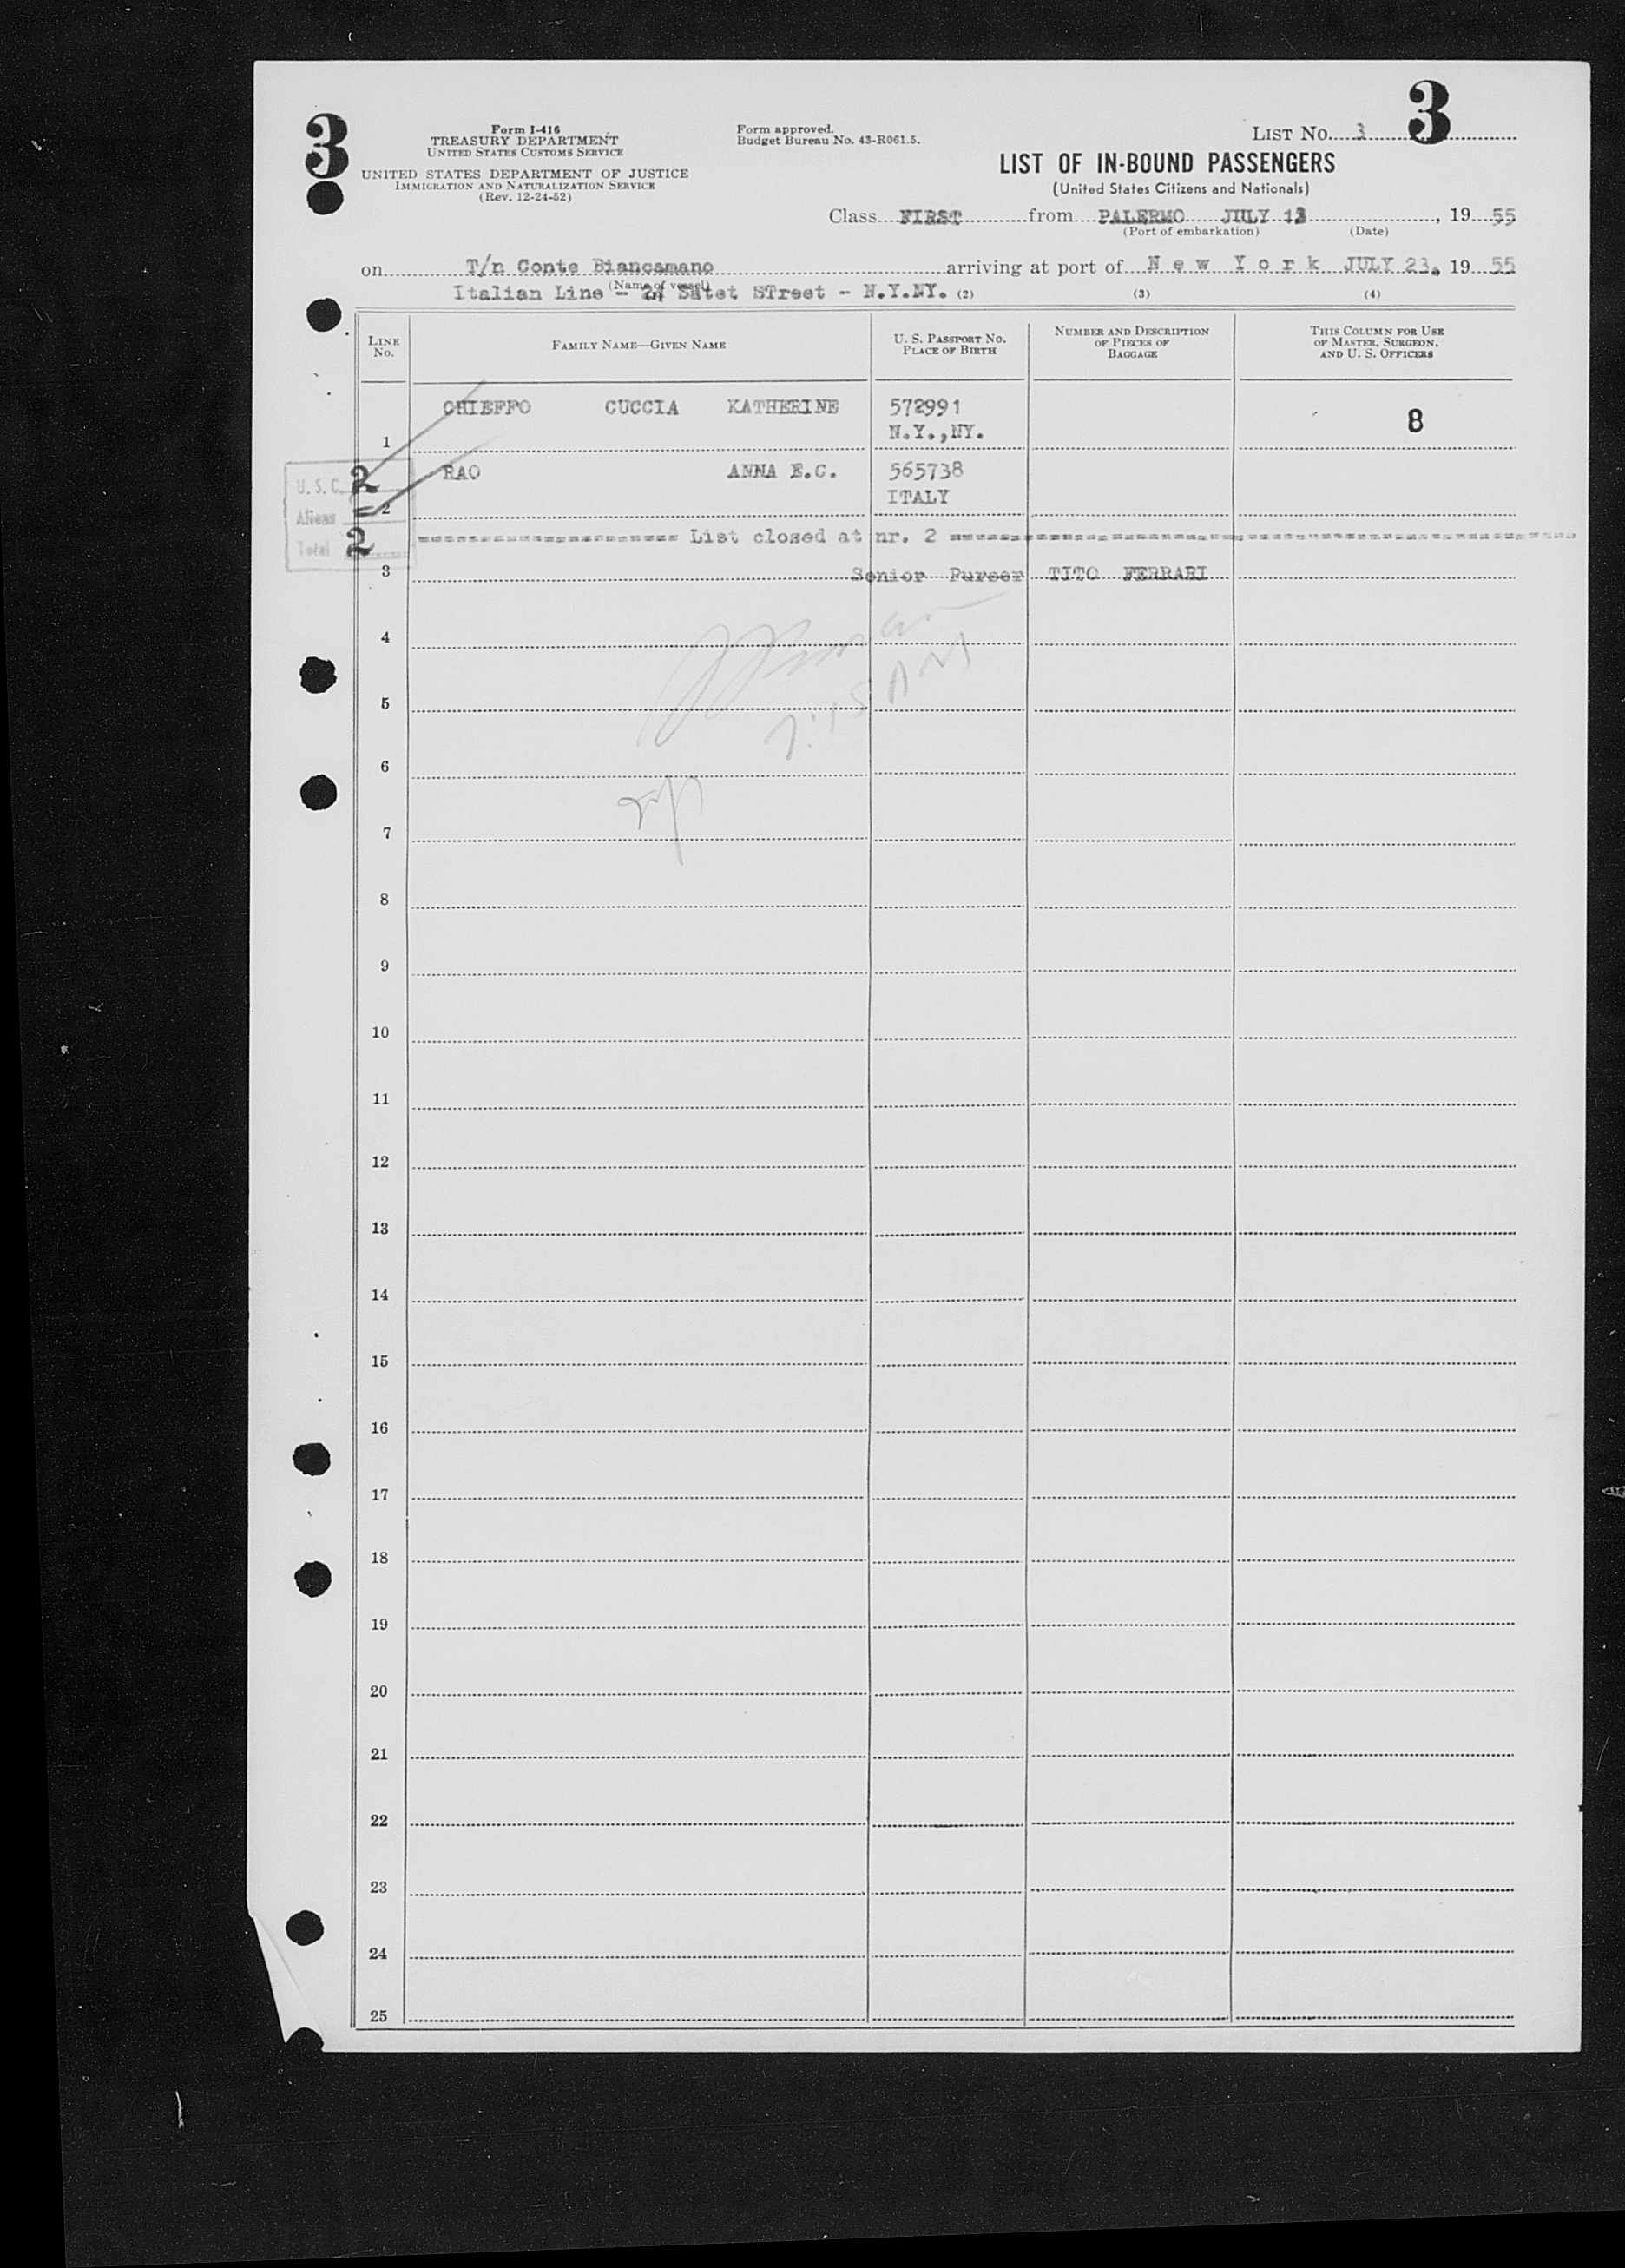 3
Form I-416
TREASURY DEPARTMENT
UNITED STATES CUSTOMS SERVICE
UNITED STATES DEPARTMENT OF JUSTICE
IMMIGRATION AND NATURALIZATION SERVICE
(Rev. 12-24-52)
Form approved.
Budget Bureau No. 43-R061.5.
LIST No. 3
3
LIST OF IN-BOUND PASSENGERS
(United States Citizens and Nationals)
Class FIRST from PALERMO JULY 13, 19 55
(Port of embarkation) (Date)
on T/n Conte Biancamano arriving at port of New York JULY 23, 19 55
(Name of vessel)
Italian Line - 24 Satet STreet - N.Y.NY. (2) (3) (4)
LINE No. FAMILY NAME—GIVEN NAME U. S. PASSPORT No. PLACE OF BIRTH NUMBER AND DESCRIPTION OF PIECES OF BAGGAGE THIS COLUMN FOR USE OF MASTER, SURGEON, AND U. S. OFFICERS
CHIEFFO CUCCIA KATHERINE 572991 8
1 N.Y.,NY.
RAO ANNA E.C. 565738
2 ITALY
U. S. C. 2
Aliens =
Total 2
List closed at nr. 2
3 Senior Purser TITO FERRARI
4
5
6
7
8
9
10
11
12
13
14
15
16
17
18
19
20
21
22
23
24
25